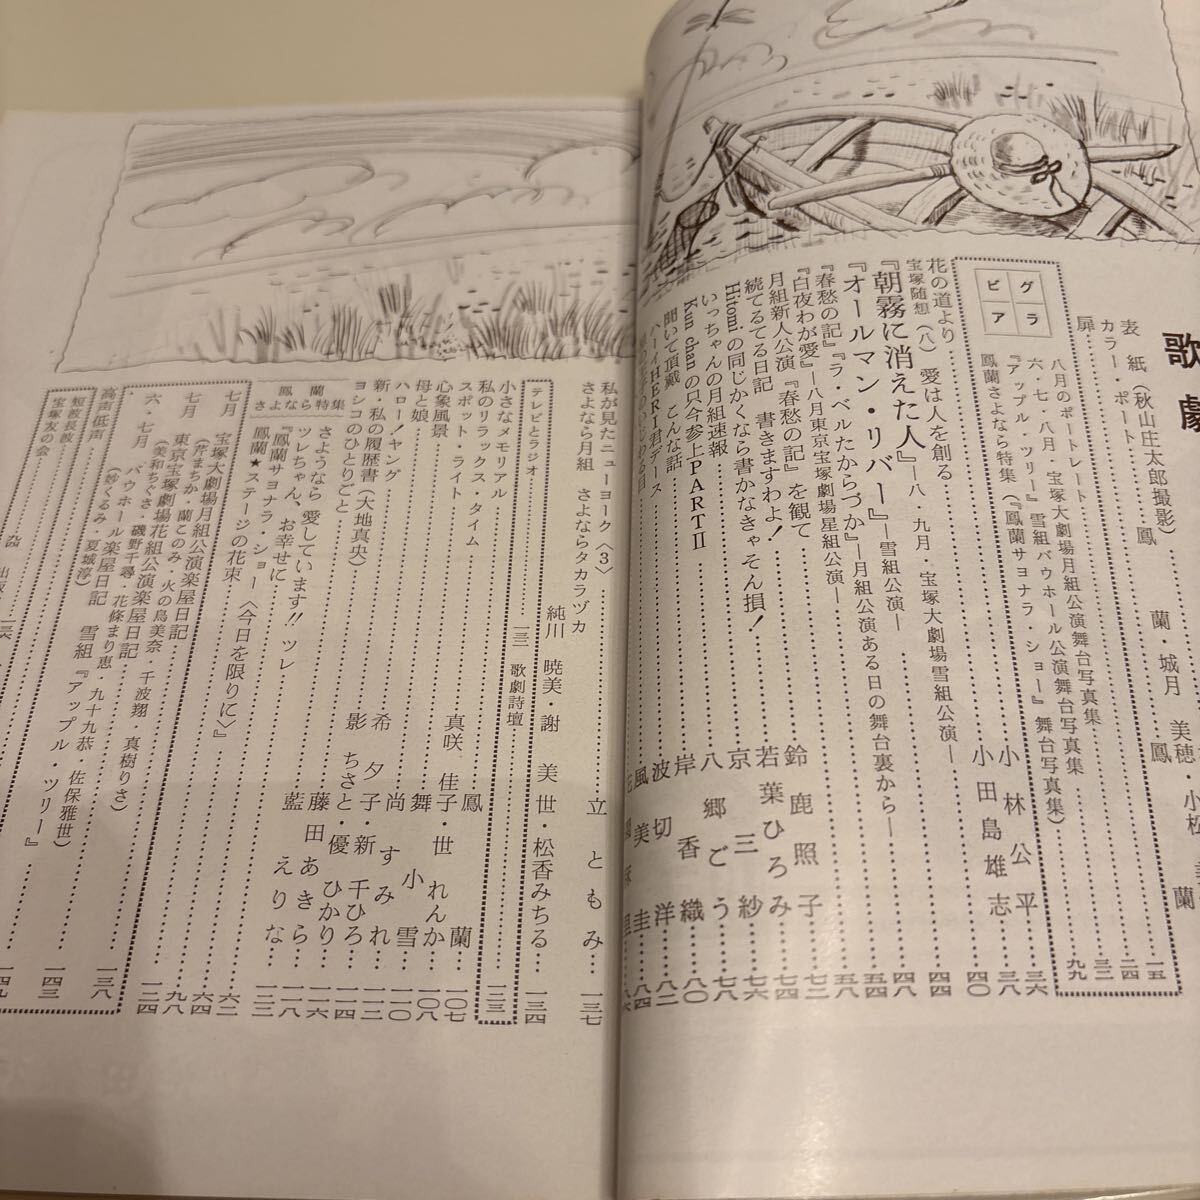 歌劇
表　紙（秋山庄太郎撮影）
カラー・ポート……鳳　蘭・城月　美穂・小松　美
扉……鳳　蘭
一五
二四
三二
グラビア
八月のポートレート
六・七・八月・宝塚大劇場月組公演舞台写真集
『アップル・ツリー』雪組バウホール公演舞台写真集
鳳蘭さよなら特集（『鳳蘭サヨナラ・ショー』舞台写真集）
九九
花の道より……小　林　公　平……三六
宝塚随想（八）　愛は人を創る……小田島雄志……三八
『朝霧に消えた人』―八・九月・宝塚大劇場雪組公演―……四〇
『オールマン・リバー』―雪組公演―……四四
『春愁の記』『ラ・ベルたからづか』―月組公演ある日の舞台裏から―……四八
『白夜わが愛』―八月東京宝塚劇場星組公演―……五四
月組新人公演『春愁の記』を観て……鈴　鹿　照　子……七三
続てるてる日記　書きますわよ！……若葉ひろみ……七四
Hitomiの同じかくなら書かなきゃそん損！……京　三　紗……七六
いっちゃんの月組速報……八　郷　ごう……七八
Kun chanの只今参上PARTⅡ……岸　香　織……八〇
聞いて頂戴　こんな話……波　切　洋……八二
ハーイHERI君デース……風　美　圭……八四
私が見たニューヨーク〈3〉……立　ともみ……一三七
さよなら月組　さよならタカラヅカ
純川　暁美・謝　美世・松香みちる……一三四
テレビとラジオ……一三一　歌劇詩壇……一三三
小さなメモリアル……鳳　蘭……一〇七
私のリラックス・タイム……真咲　佳子・世　れんか……一〇八
スポット・ライト
心象風景……舞　小雪……一一〇
母と娘……尚　すみれ……一一二
ハロー！ヤング……希　夕子・新　千ひろ……一一四
新・私の履歴書（大地真央）……影　ちさと・優　ひかり……一一六
ヨシコのひとりごと……藤田あきら……一一八
鳳　蘭
さよなら特集
さようなら　愛しています!!　ツレ……藍　えりな……一二二
ツレちゃん、お幸せに
『鳳蘭サヨナラ・ショー〈今日を限りに〉』
鳳蘭★ステージの花束
七月　宝塚大劇場月組公演楽屋日記……六二
（芹まちか・蘭このみ・火の鳥美奈・千波翔・真樹りさ）
七月　東京宝塚劇場花組公演楽屋日記……六四
（美和ちぐさ・磯野千尋・花條まり恵・九十九恭・佐保雅世）
六・七月　バウホール楽屋日記　雪組『アップル・ツリー』……一二四
（妙くるみ・夏城淳）
高声低声……一三八
短波長波……一四三
宝塚友の会……一四九